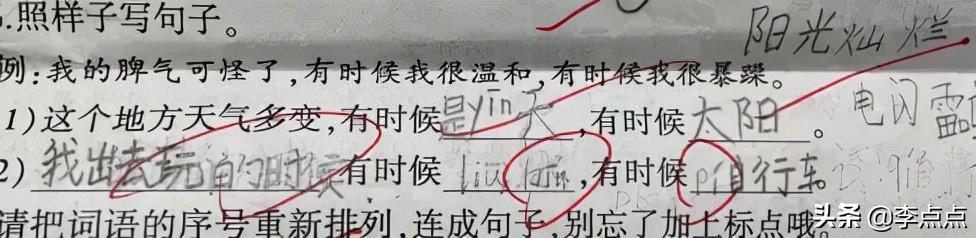 .照样子写句子。
阳光灿烂
例:我的脾气可怪了,有时候我很温和,有时候我很暴躁。
1)这个地方天气多变,有时候是yīn天,有时候太阳。电闪雷
2)我出去玩的时候有时候liū,有时候自行车。
请把词语的序号重新排列,连成句子,别忘了加上标点哦。
头条 @李点点